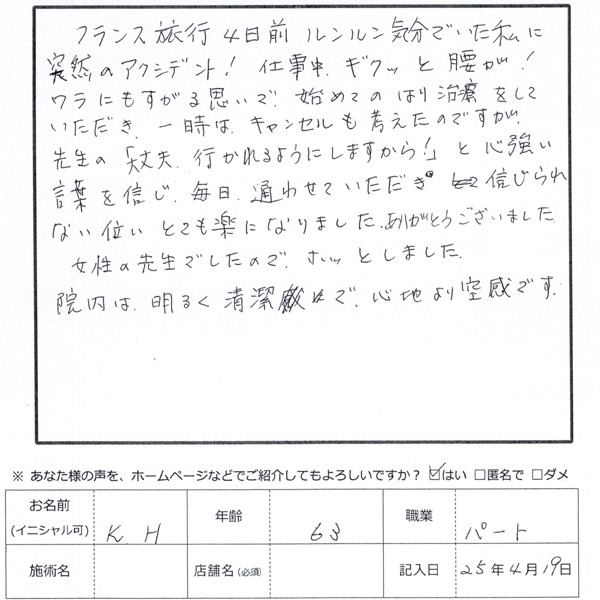 フランス旅行4日前 ルンルン気分でいた私に
突然のアクシデント! 仕事中、ギクッと腰が!
ワラにもすがる思いで、始めてのはり治療をして
いただき、一時は、キャンセルも考えたのですが、
先生の「丈夫、行かれるようにしますから!」と心強い
言葉を信じ、毎日、通わせていただき 信じられ
ない位い とても楽になりました。ありがとうございました。
女性の先生でしたので、ホッとしました。
院内は、明るく清潔 で、心地より空感です。
※ あなた様の声を、ホームページなどでご紹介してもよろしいですか? ☑はい □匿名で □ダメ
お名前 (イニシャル可) K.H 年齢 63 職業 パート
施術名 店舗名(必須) 記入日 25年4月19日